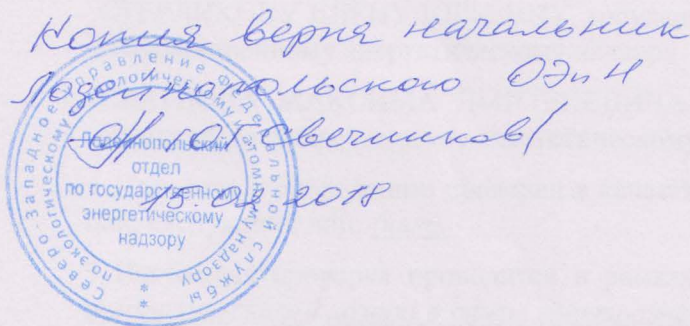 Копия верна начальник
Лодейнопольского ОЭиН
Свечников/
15.02.2018
Северо-Западное управление Федеральной службы
по экологическому и атомному надзору
Лодейнопольский
отдел
по государственному
энергетическому
надзору